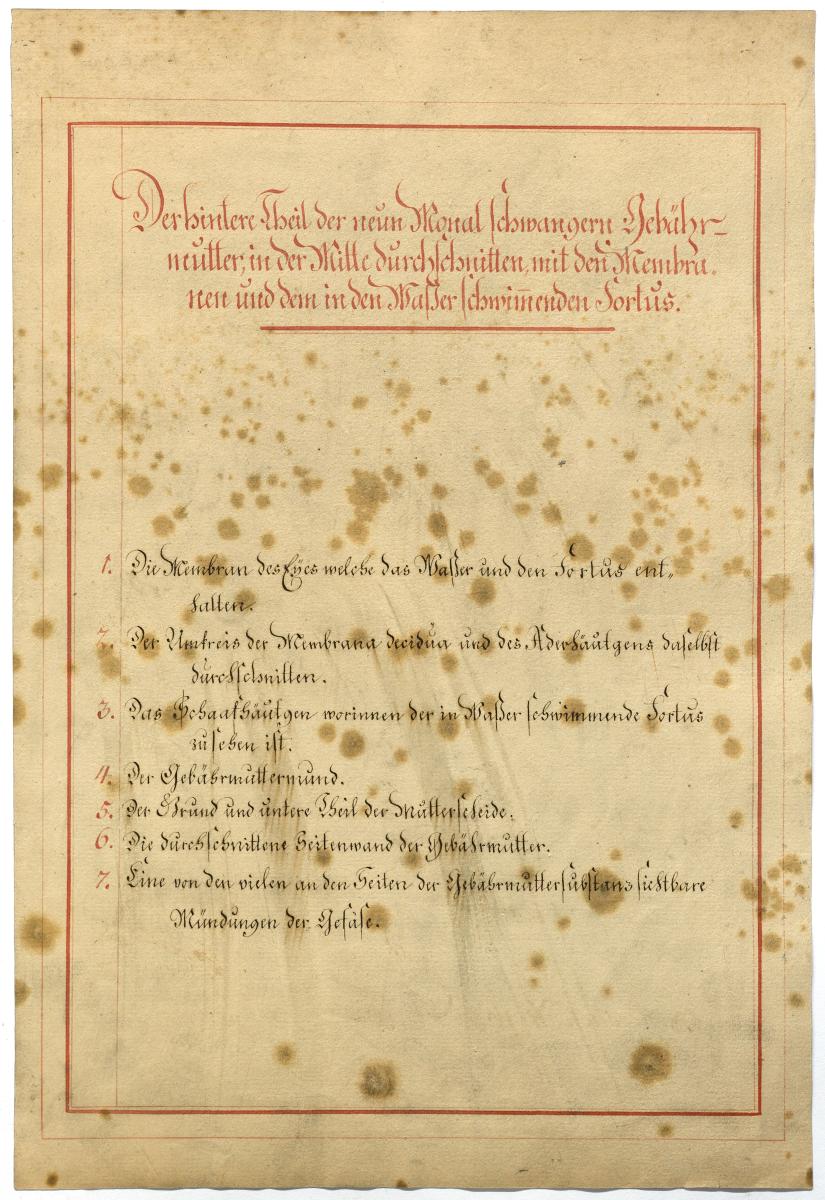 Der hintere Theil der neun Monat schwangern Gebähr-
mutter, in der Mitte durchschnitten, mit den Membra-
nen und dem in den Waßer schwim̄enden Foetus.
1. Die Membran des Eÿes welche das Waßer und den Foetus ent-
halten.
2. Der Umkreis der Membrana decidua und des Aderhäutgens daselbst
durchschnitten.
3. Das Schaafhäutgen worinnen der in Waßer schwimmende Foetus
zu sehen ist.
4. Der Gebährmuttermund.
5. Der Grund und untere Theil der Mutterscheide.
6. Die durchschnittene Seitenwand der Gebährmutter.
7. Eine von den vielen an den Seiten der Gebährmuttersubstanz sichtbare
Mündungen der Gefäse.